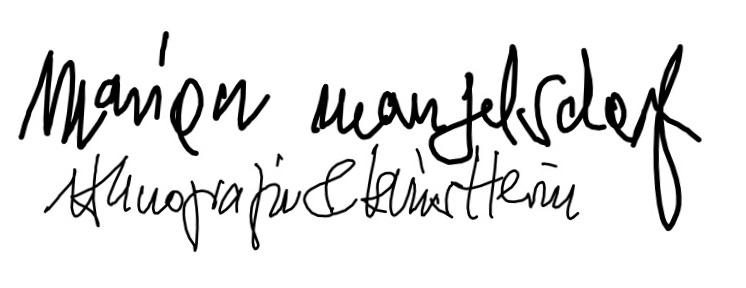 marion mangelsdorf
ethnografin & künstlerin